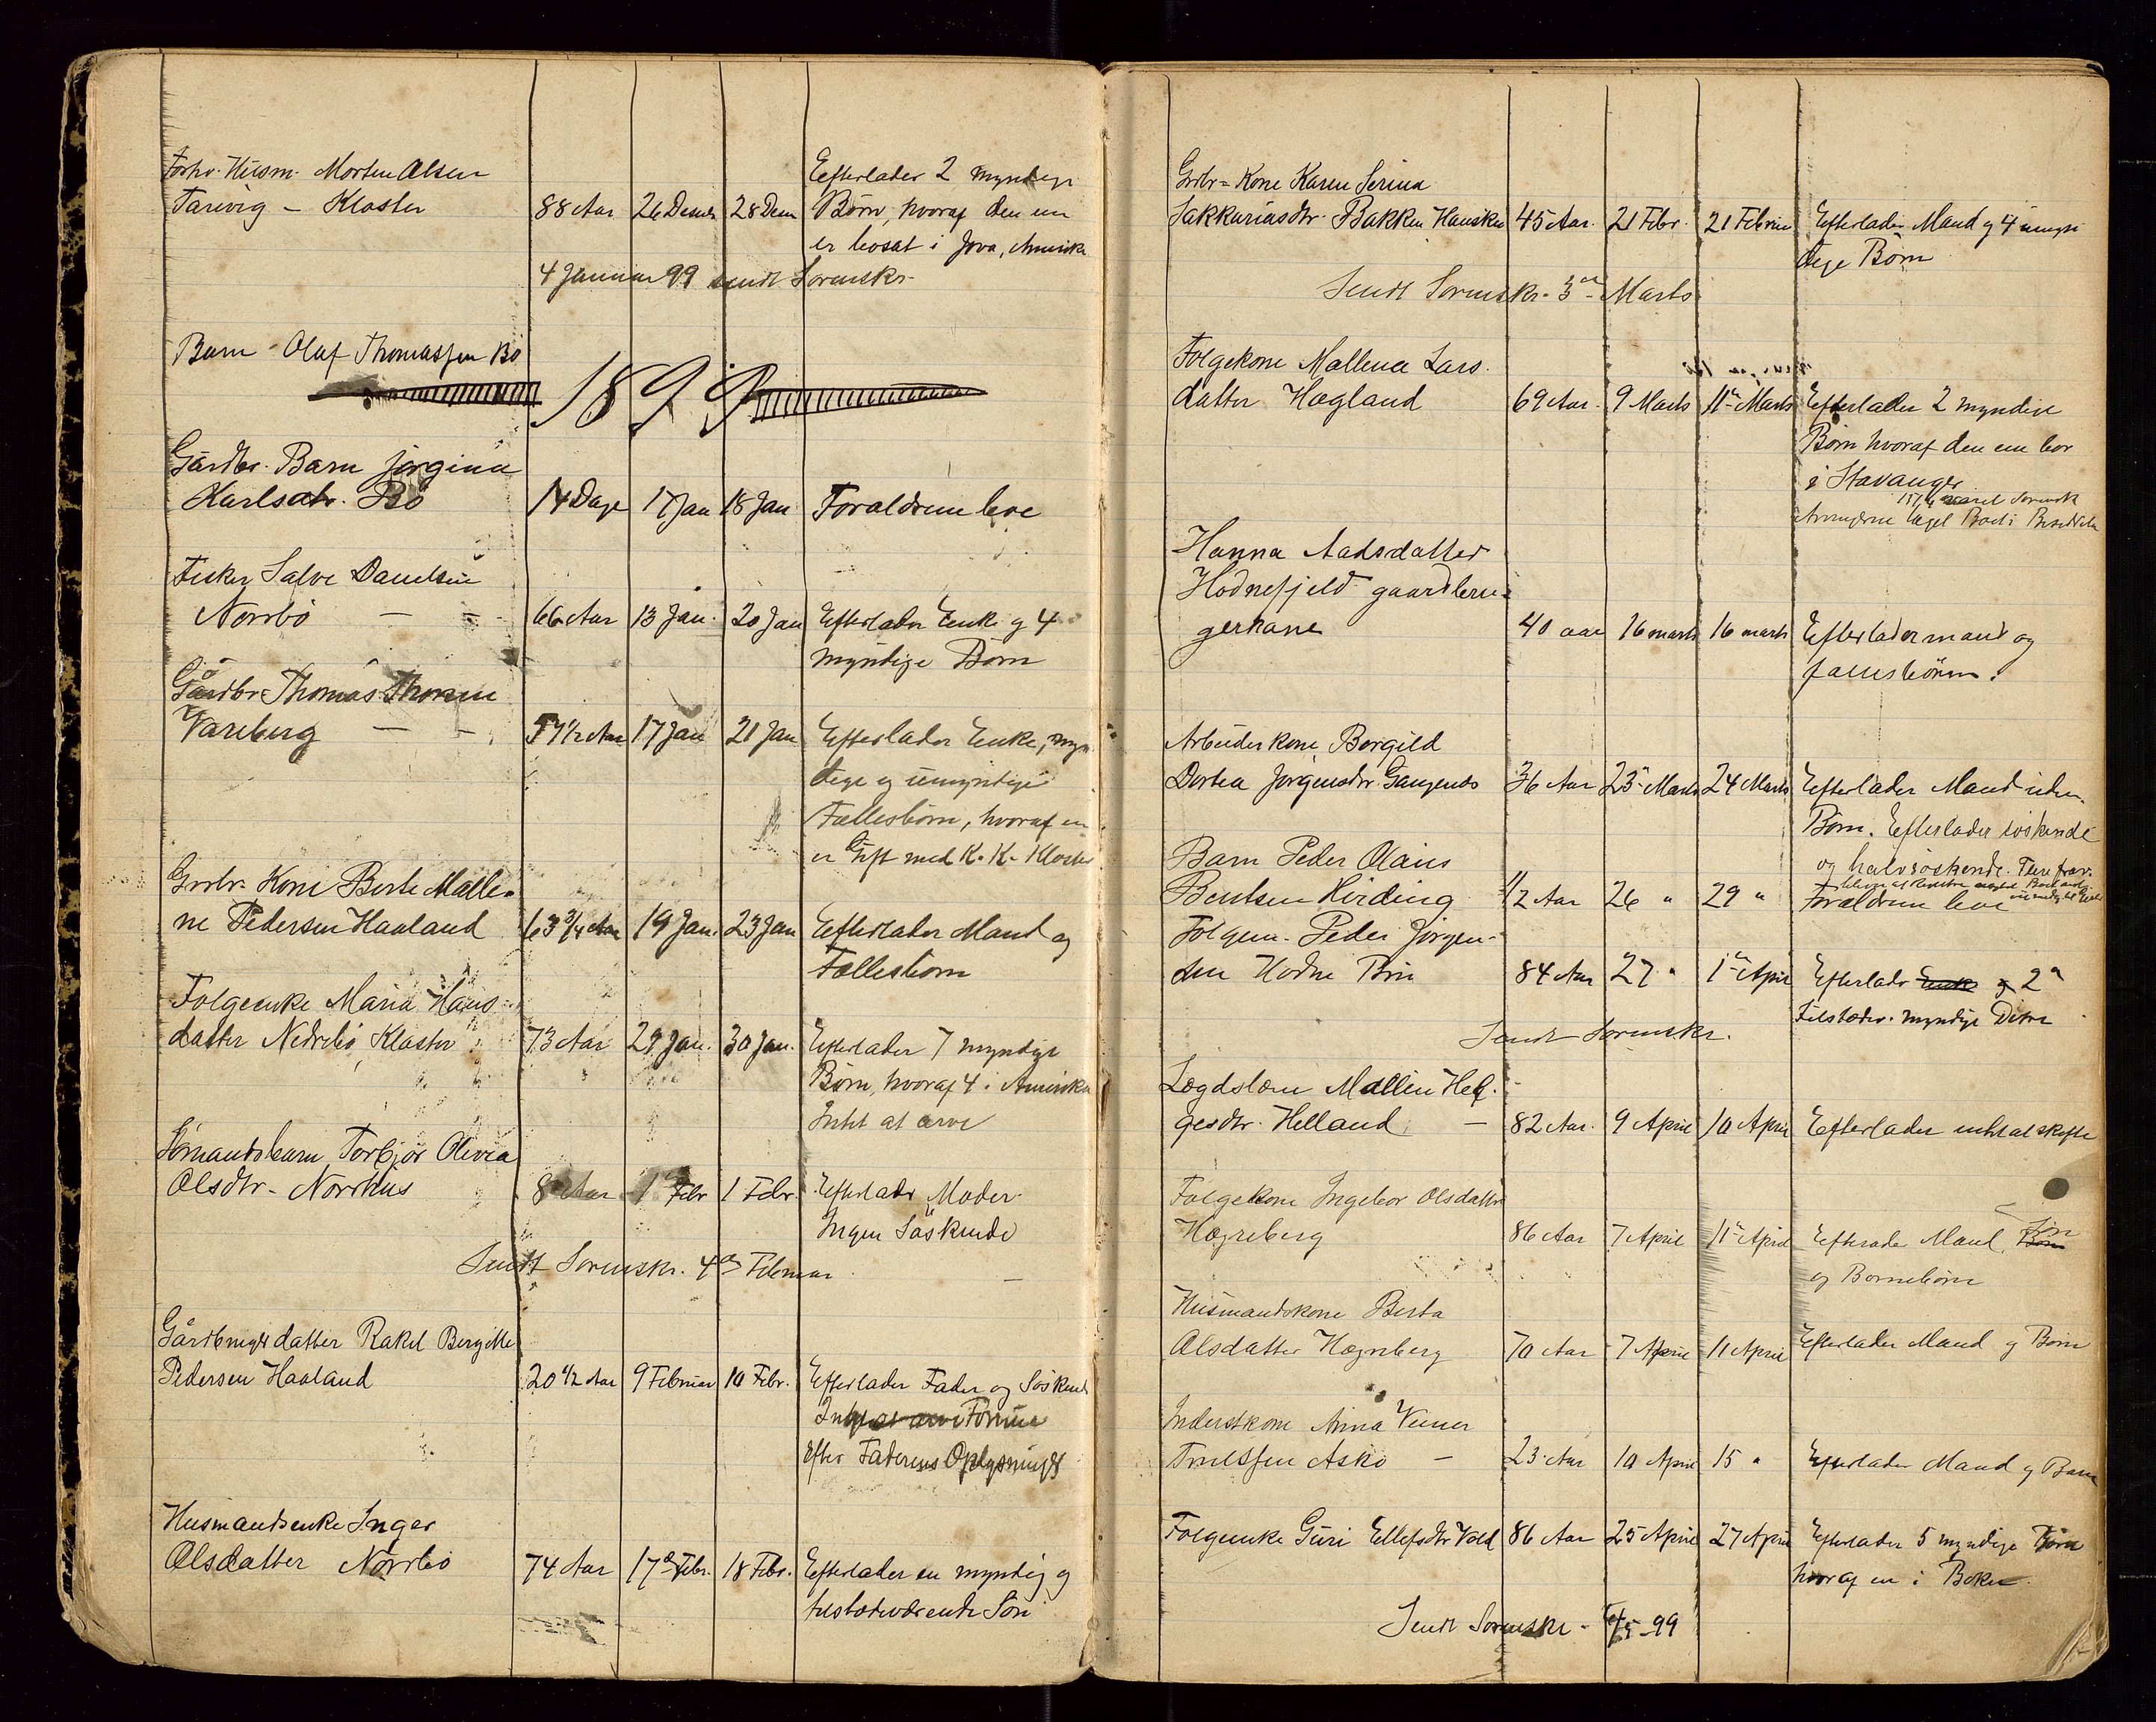 Forhv. Husm. Morten Olsen
Tarevig - Kloster 88 Aar 26 Decmbr 28 Dem
Efterlader 2 myndige
Børn, hvoraf den een
er bosat i Jova, Amirika
4 Januar 99 sendt Sorenskr.
Barn Olaf Thomassen Bö
1899
Gårdbr. Barn Jörgina
Karlsdtr. Bö 14 Dage 17 Jan 18 Jan Foraldrene leve
Fisker Salve Danielsen
Norrbö - - 66 Aar 13 Jan. 20 Jan Efterlader Enke og 4
myndige Børn
Gårdbr Thomas Thomsen
Vareberg - - 57 1/2 Aar 17 Jan 21 Jan Efterlader Enke, myn
dige og umyndige
Fællesbörn, hvoraf en
er Gift med K. K. Kloster
Grdbr. Kone Berte Malle-
ne Pedersen Haaland 63 3/4 Aar 19 Jan. 23 Jan Efterlader Mand og
Fællesbörn
Folgeenke Maria Hans
datter Nedrebö Kloster 73 Aar 29 Jan. 30 Jan. Efterlader 7 myndige
Børn, hvoraf 4 i Amirika
Intet at arve
Sömandsbarn Torbjör Olivia
Olsdtr. Norrhus 8 Aar 1 Febr 1 Febr. Efterlader Moder.
Ingen Söskende
Sendt Sorenskr. 4de Februar
Gårdbrugers datter Rakel Bergitte
Pedersen Haaland 20 1/2 Aar 9 Februar 10 Febr. Efterlader Fader og Söskend
Intet at arve Formue
efter Faderens Oplysninger
Husmandsenke Inger
Olsdatter Norrbö 74 Aar 17de Febr. 18 Febr. Efterlader en myndig og
tilstedeværende Sön
Grdbr = Kone Karen Serina
Sakkariasdtr. Bakken Hausken 45 Aar. 21 Febr. 21 Februar Efterlader Mand og 4 umyn
dige Børn
Sendt Sorenskr. 3de Marts
Folgekone Mallena Lars.
datter Hægland 69 Aar. 9 Marts 11te Marts Efterlader 2 myndige
Børn hvoraf den een bor
i Stavanger
Hanna Aadsdatter
Hodnefjeld gaardbru-
gerkone 40 aar 16 marts 16 marts Efterlader mand og
fællesbörn.
Arbeiderkone Borgild
Dortea Jörgensdtr. Gangenes 36 Aar 23 Marts 24 Marts Efterlader Mand uden
Börn. Efterlader söskende
og halvsöskende.
Barn Peder Olaus
Bentsen Kirding 1/2 Aar 26 " 29 " Foraldrene leve
Folgem. Peder Jörgen-
sen Hodne Brin 84 Aar 27 " 1te April Efterlader Enke og 2
tilstedev. myndige Dötre
Sendt Sorenskr.
Lægdslem Mallin Hel-
gesdtr. Helland - 82 Aar. 9 April 10 April Efterlader intet at skifte
Folgekone Ingebor Olsdatter
Hægreberg 86 Aar 7 April 11te April Efterlade Mand, Børn Sön
og Børnebörn
Husmandskone Berta
Olsdatter Hægreberg 70 Aar 7 April 11 April Efterlader Mand og Børn
Inderstkone Anna
Askö - 23 Aar 10 April 15 " Efterlader Mand og Barn
Folgeenke Guri Ellefsdtr Vold 86 Aar 25 April 27 April Efterlader 5 myndige Børn
hvoraf en i Bokn.
Sendt Sorenskr - 4/5 - 99